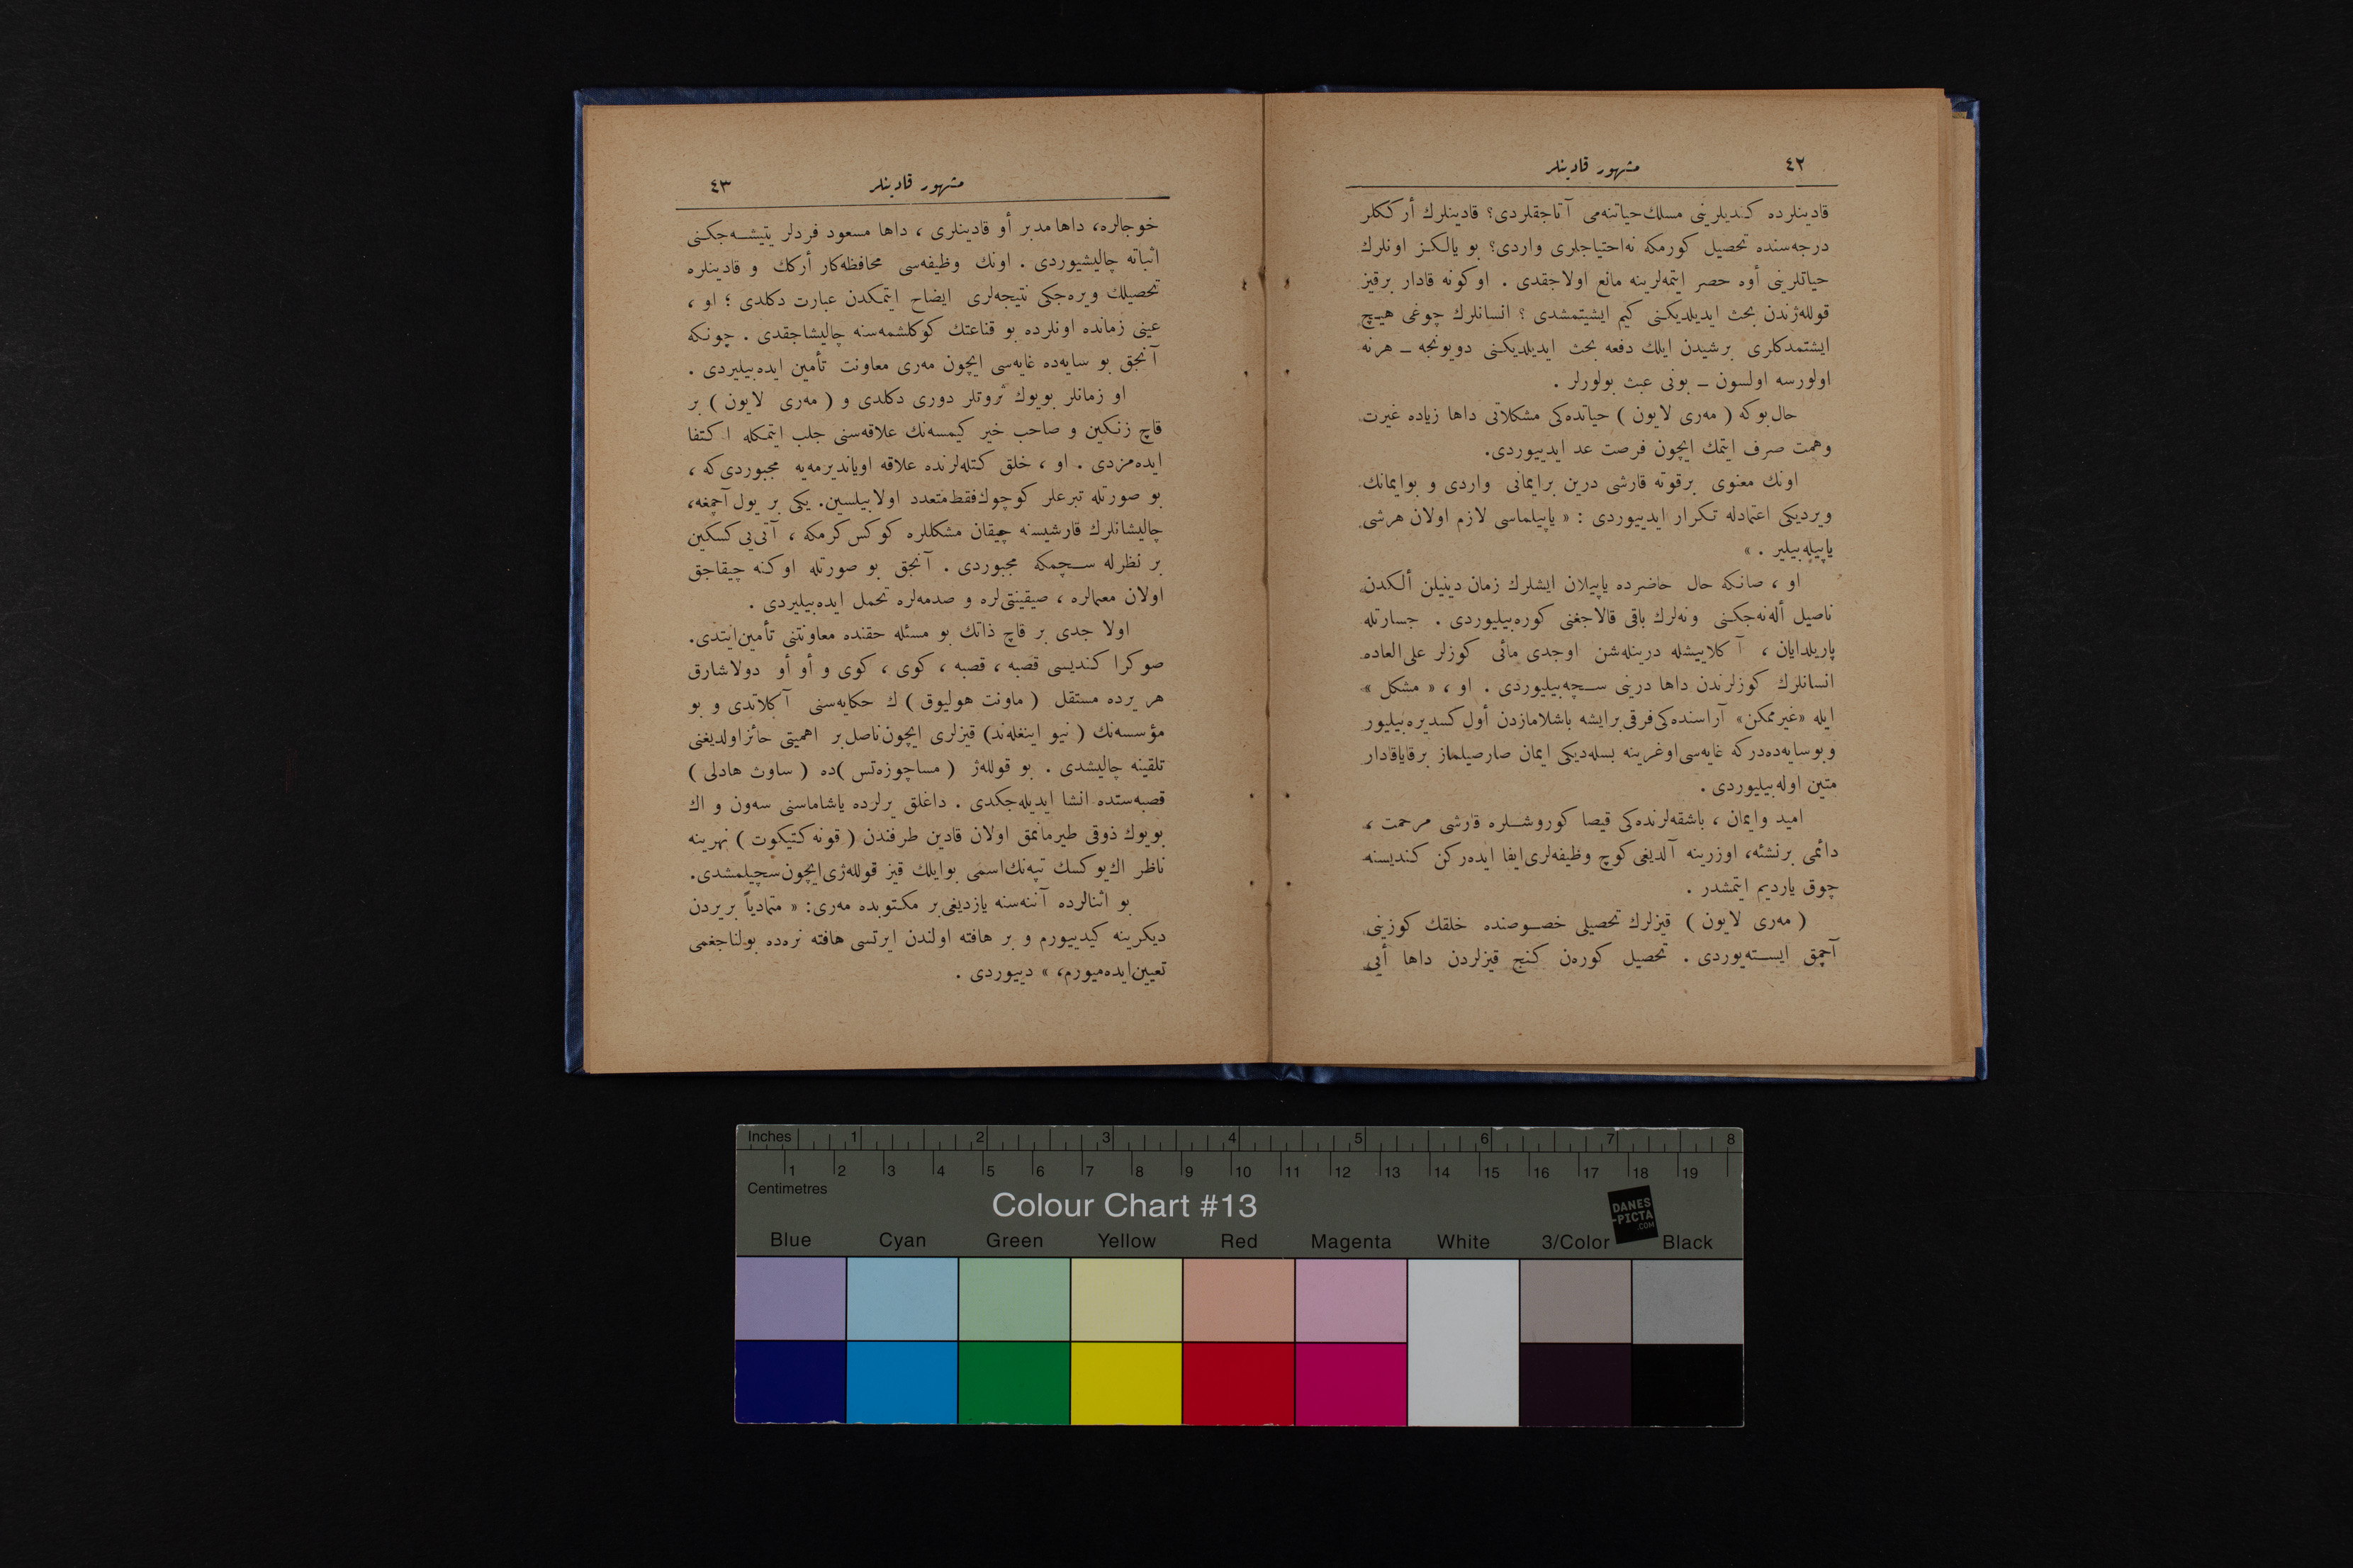 ٤٢
مشهور قادینلر
قادینلرده كندیلرینی مسلك حیاتنه‌می آتاجقلردی؟ قادینلرك أرككلر
درجه‌سنده تحصیل كورمكه نه‌احتیاجلری واردی؟ بو یالكز اونلرك
حیاتلرینی أوه حصر ایتمه‌لرینه مانع اولاجقدی . اوكونه قادار برقیز
قولله‌ژندن بحث ایدیلدیكنی كیم ایشیتمشدی ؟ انسانلرك چوغی هیچ
ایشتمدكلری برشیدن ایلك دفعه بحث ایدیلدیكنی دویونجه ــ هرنه
اولورسه اولسون ــ بونی عبث بولورلر .
حال‌بوكه ( مه‌ری لایون ) حیاتده‌كی مشكلاتی داها زیاده غیرت
وهمت صرف ایتمك ایچون فرصت عد ایدییوردی.
اونك معنوی برقوته قارشی درین برایمانی واردی و بوایمانك
ویردیكی اعتمادله تكرار ایدییوردی : « یاپیلماسی لازم اولان هرشی
یاپیله‌بیلیر . »
او ، صانكه حال حاضرده یاپیلان ایشلرك زمان دینیلن ألكدن
ناصیل أله‌نه‌جكنی ونه‌لرك باقی قالاجغنی كوره‌بیلیوردی . جسارتله
پاریلدایان ، آكلاییشله درینله‌شن اوجدی مائی كوزلر علی‌العاده
انسانلرك كوزلرندن داها درینی سـچه‌بیلیوردی . او ، « مشكل »
ایله «غیرممكن» آراسنده‌كی فرقی برایشه باشلامازدن أول كسدیره‌بیلیور
وبوسایه‌ده‌دركه غایه‌سی اوغرینه بسله‌دیكی ایمان صارصیلماز برقایاقادار
متین اوله‌بیلیوردی .
امید وایمان ، باشقه‌لرنده‌كی قیصا كوروشـلره قارشی مرحمت ،
دائمی برنشئه، اوزرینه آلدیغی كوچ وظیفه‌لری ایفا ایده‌ركن كندیسنه
چوق یاردیم ایتمشدر .
( مه‌ری لایون ) قیزلرك تحصیلی خصـوصنده خلقك كوزینی
آچمق ایسـته‌یوردی . تحصیل كوره‌ن كنج قیزلردن داها أیی
مشهور قادینلر
٤٣
خوجالره، داها مدبر أو قادینلری ، داها مسعود فردلر یتیشـه‌جكنی
اثباته چالیشیوردی . اونك وظیفه‌سی محافظه‌كار أركك و قادینلره
تحصیلك ویره‌جكی نتیجه‌لری ایضاح ایتمكدن عبارت دكلدی ؛ او ،
عینی زمانده اونلرده بو قناعتك كوكلشمه‌سنه چالیشاجقدی . چونكه
آنجق بو سایه‌ده غایه‌سی ایچون مه‌ری معاونت تأمین ایده‌بیلیردی .
او زمانلر بویوك ثروتلر دوری دكلدی و ( مه‌ری لایون ) بر
قاچ زنكین و صاحب خیر كیمسه‌نك علاقه‌سنی جلب ایتمكله اكتفا
ایده‌مزدی . او ، خلق كتله‌لرنده علاقه اویاندیرمه‌یه مجبوردی‌كه ،
بو صورتله تبرعلر كوچوك فقط متعدد اولابیلسین. یكی بر یول آچمغه،
چالیشانلرك قارشیسنه چیقان مشكللره كوكس كرمكه ، آتی‌یی كسكین
بر نظرله سـچمكه مجبوردی . آنجق بو صورتله اوكنه چیقاجق
اولان معمالره ، صیقینتی‌لره و صدمه‌لره تحمل ایده‌بیلیردی .
اولا جدی بر قاچ ذاتك بو مسئله حقنده معاونتنی تأمین‌ایتدی.
صوكرا كندیسی قصبه ، قصبه ، كوی ، كوی و أو أو دولاشارق
هر یرده مستقل ( ماونت هولیوق ) ك حكایه‌سنی آكلاتدی و بو
مؤسسه‌نك ( نیو اینغله‌ند) قیزلری ایچون ناصل بر اهمیتی حائز اولدیغنی
تلقینه چالیشدی . بو قولله‌ژ ( مساچوزه‌تس )ده ( ساوث هادلی )
قصبه‌ستده انشا ایدیله‌جكدی . داغلق یرلرده یاشاماسنی سه‌ون و اك
بویوك ذوقی طیرمانمق اولان قادین طرفندن ( قونه‌كتیكوت ) نهرینه
ناظر اك‌یوكسك تپه‌نك اسمی بوایلك قیز قولله‌ژی ایچون سچیلمشدی.
بو اثنالرده آننه‌سنه یازدیغی بر مكتوبده مه‌ری: « متمادیاً بریردن
دیكرینه كیدییورم و بر هافته اولندن ایرتسی هافته نره‌ده بولناجغمی
تعیین ایده‌میورم، » دییوردی .
Inches 1 2 3 4 5 6 7 8
1 2 3 4 5 6 7 8 9 10 11 12 13 14 15 16 17 18 19
Centimetres
Colour Chart #13
DANES
-PICTA
.COM
Blue Cyan Green Yellow Red Magenta White 3/Color Black